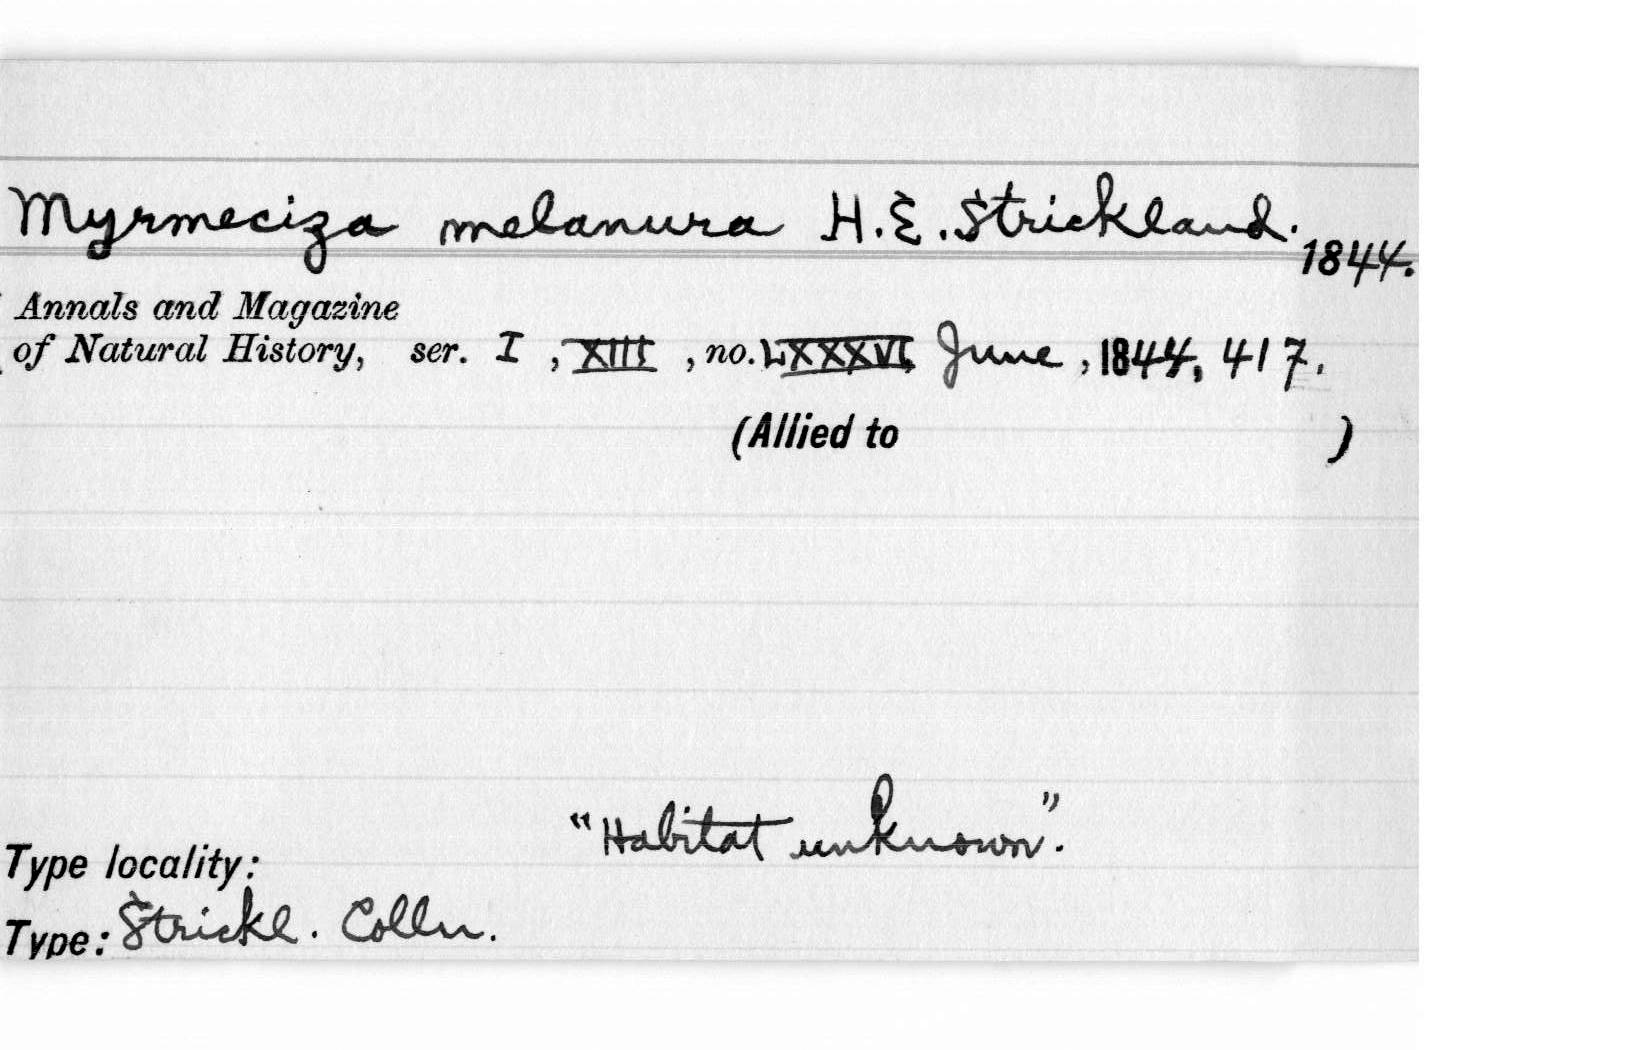 Myrmeciza melanura H.E. Strickland.
1844.
Annals and Magazine
of Natural History, ser. I , XIII , no. LXXXVI, June , 1844, 417.
(Allied to )
"Habitat unknown".
Type locality:
Type: Strickl. Colln.